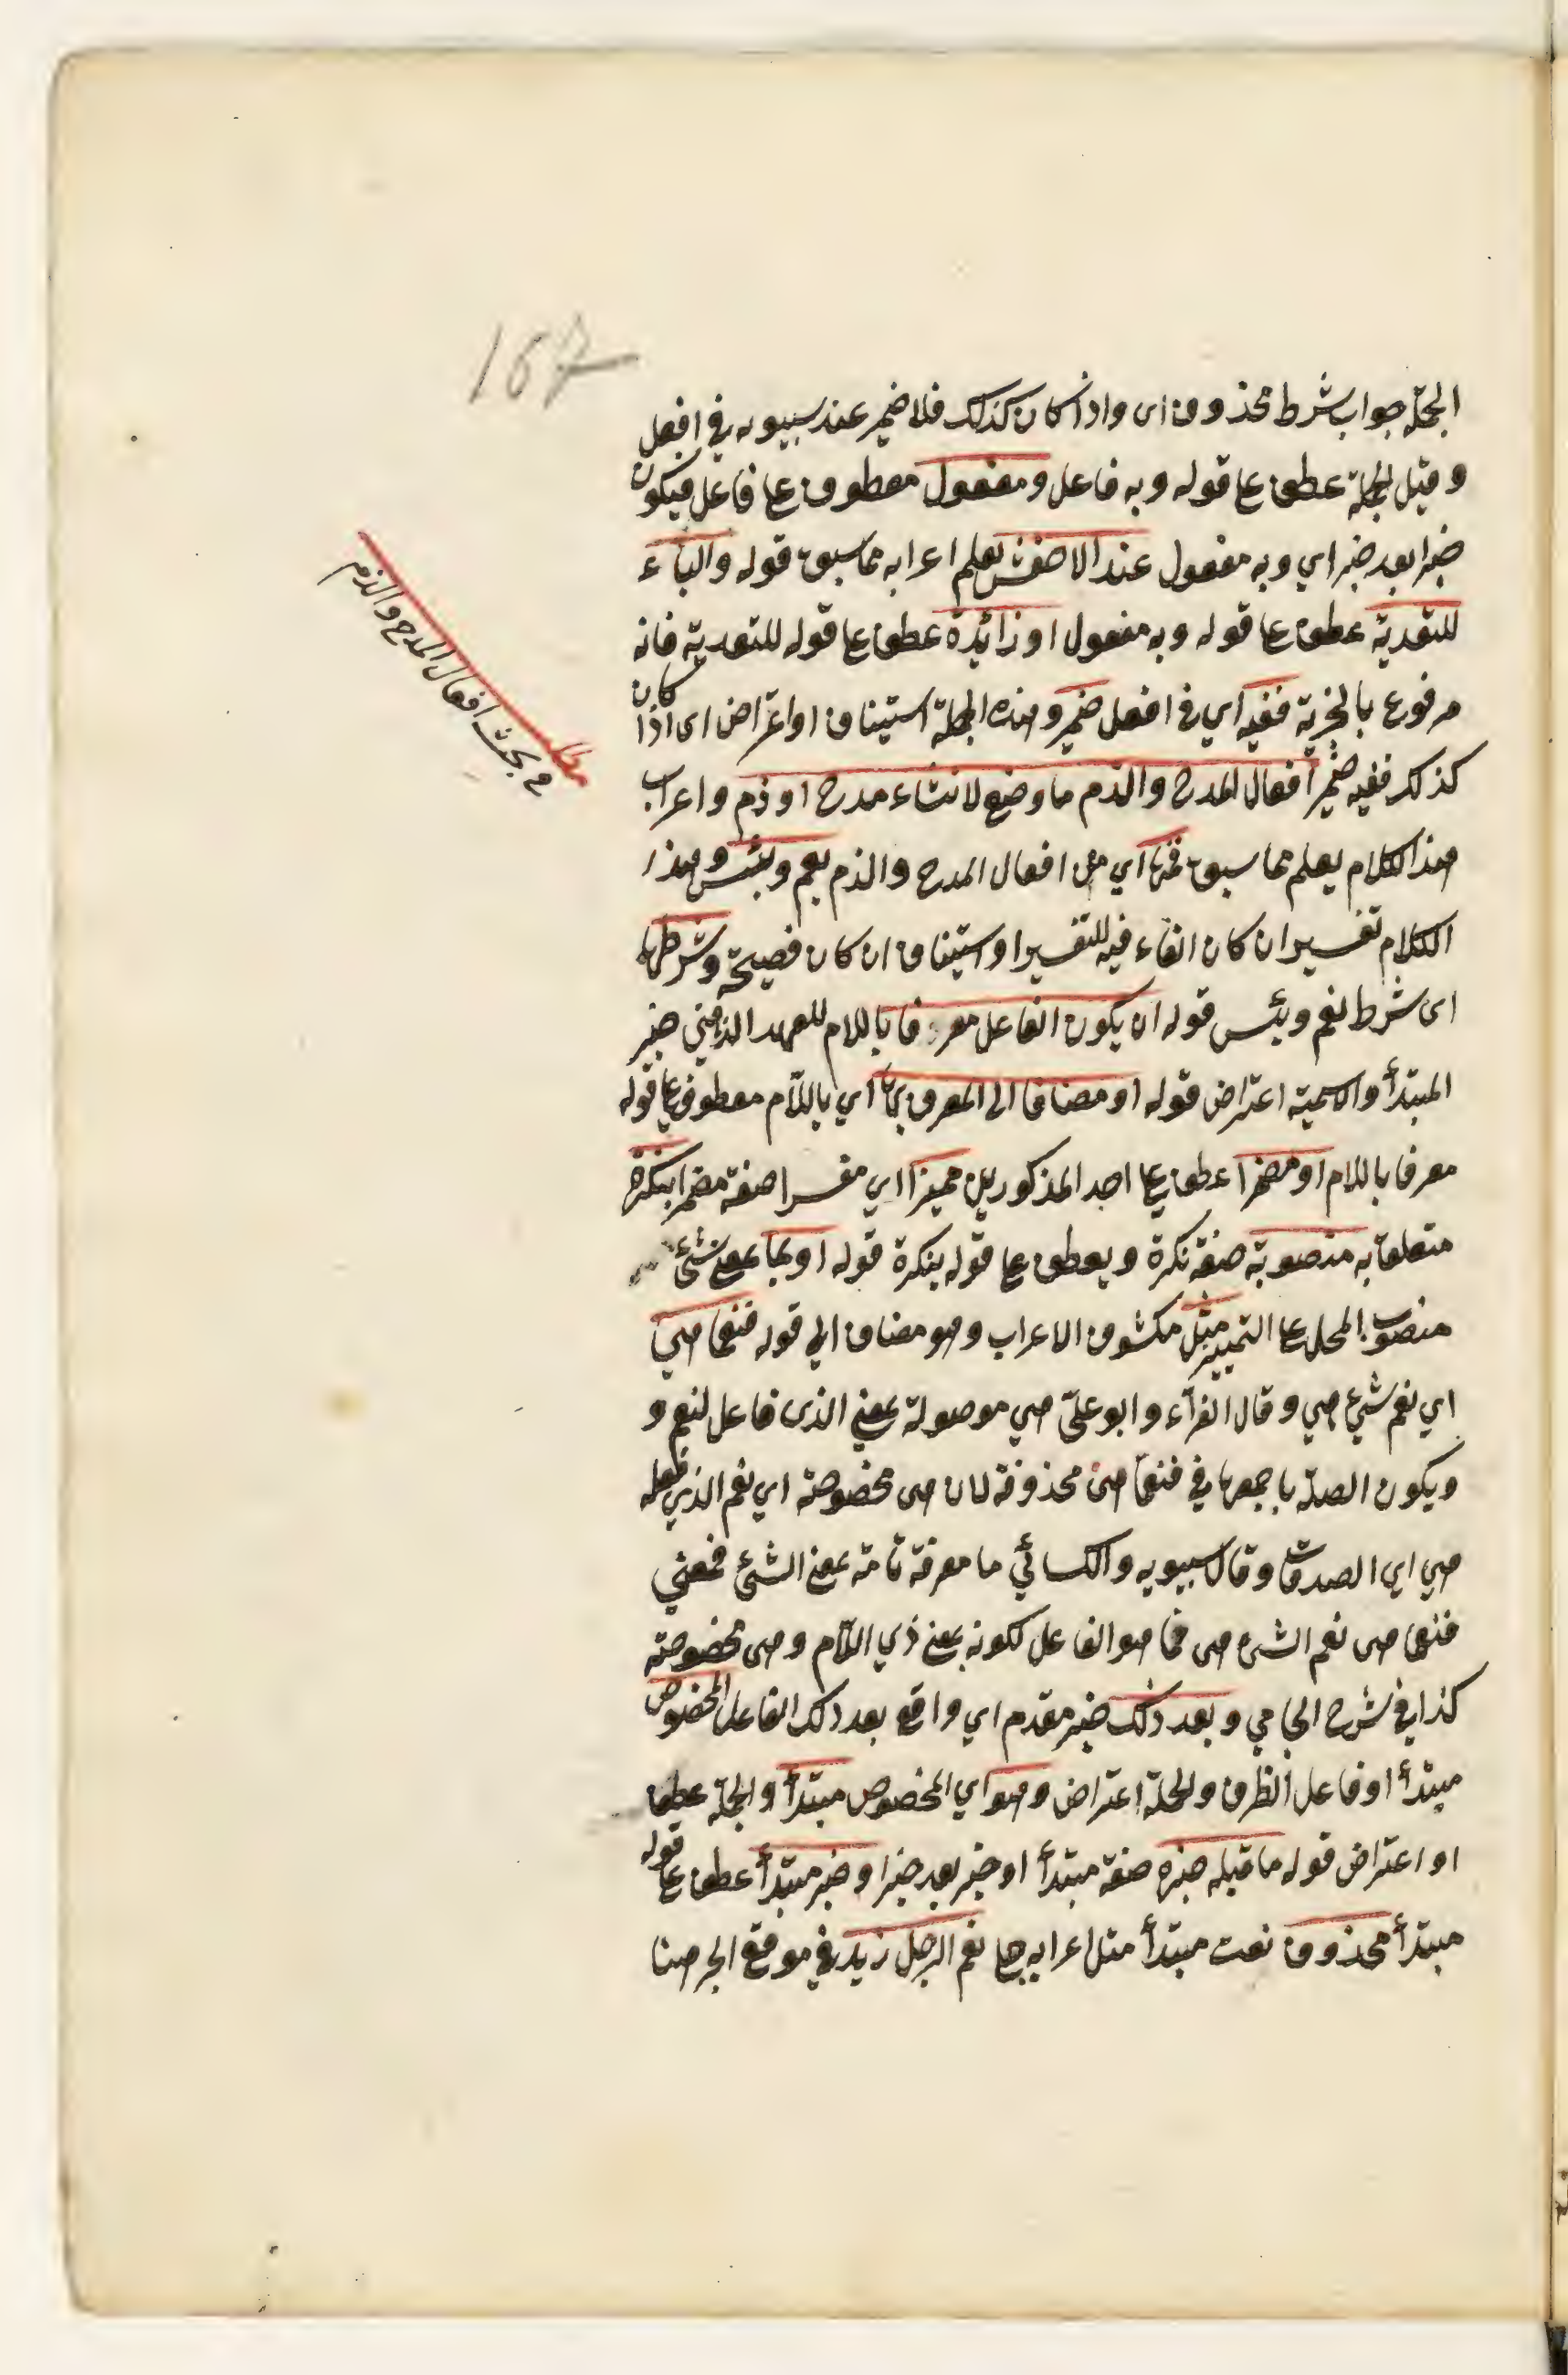 167
الجملة جواب شرط محذوف اى واذا كان كذلك فلا ضمير عند سيبويه في افعل
وقيل الجملة عطف على قوله وبه فاعل ومفعول معطوف على فاعل فيكون
خبرا بعد خبر اي وبه مفعول عند الاخفش يعلم اعرابه مما سبق قوله والباء
للتعدية عطف على قوله وبه مفعول او زائدة عطف على قوله للتعدية فانه
مرفوع بالخبرية ففيه اي في افعل ضمير وهذه الجملة استيناف او اعتراض اى اذا كان
كذلك ففيه ضمير افعال المدح والذم ما وضع لانشاء مدح او ذم واعراب
هذا الكلام يعلم مما سبق فمنها اي من افعال المدح والذم نعم وبئس وهذا
الكلام تفسير ان كان الفاء فيه للتفسير او ستيناف ان كان فصيحة وشرطها
اى شرط نعم وبئس قوله ان يكون الفاعل معرفا باللام للعهد الذهني خبر
المبتدأ والاسمية اعتراض قوله او مضافا الى المعرف بها اي باللام معطوف على قوله
معرفا باللام او مضمرا عطف على احد المذكورين مميزا اي مفسرا صفة مضمرا بنكرة
متعلق به منصوبة صفة نكرة ويعطف على قوله بنكرة قوله او بما بمعنى شئ
منصوب المحل على التمييز مثل مكشوف الاعراب وهو مضاف الي قوله فنعما هي
اي نعم شئ هي وقال الفراء وابو علي هي موصولة بمعني الذى فاعل لنعم و
ويكون الصلة باجمعها في فنعما هى محذوفة لان هى مخصوصة اي نعم الذي فعله
هي اي الصدقات وقال سيبويه والكسائي ما معرفة تامة بمعنى الشئ فمعني
فنعما هى نعم الشئ هى فما هو الفاعل لكونه بمعنى ذي اللام وهى مخصوصة
كذا في شرح الجامي وبعد ذلك خبر مقدم اي واقع بعد ذلك الفاعل المخصوص
مبتدأ او فاعل الظرف والجملة اعتراض وهو اي المخصوص مبتدأ والجملة عطف
او اعتراض قوله ما قبله خبره صفة مبتدأ او خبر بعد خبر او خبر مبتدأ عطف على قوله
مبتدأ محذوف نعت مبتدأ مثل اعرابه جلي نعم الرجل زيد في موقع الجر هنا
مطلب
في بحث افعال المدح والذم